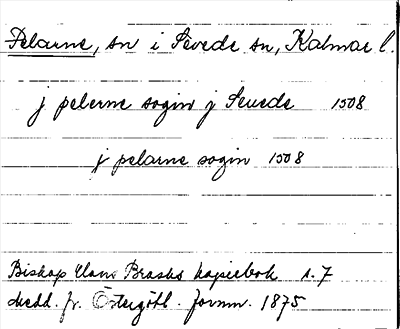 Pelarne, sn i Sevede sn, Kalmar l.
j pelerne sogin j Seuede 1508
j pelarne sogin 1508
Biskop Hans Brasks kopiebok s. 7
Medd. fr. Östergötl. fornm. 1875